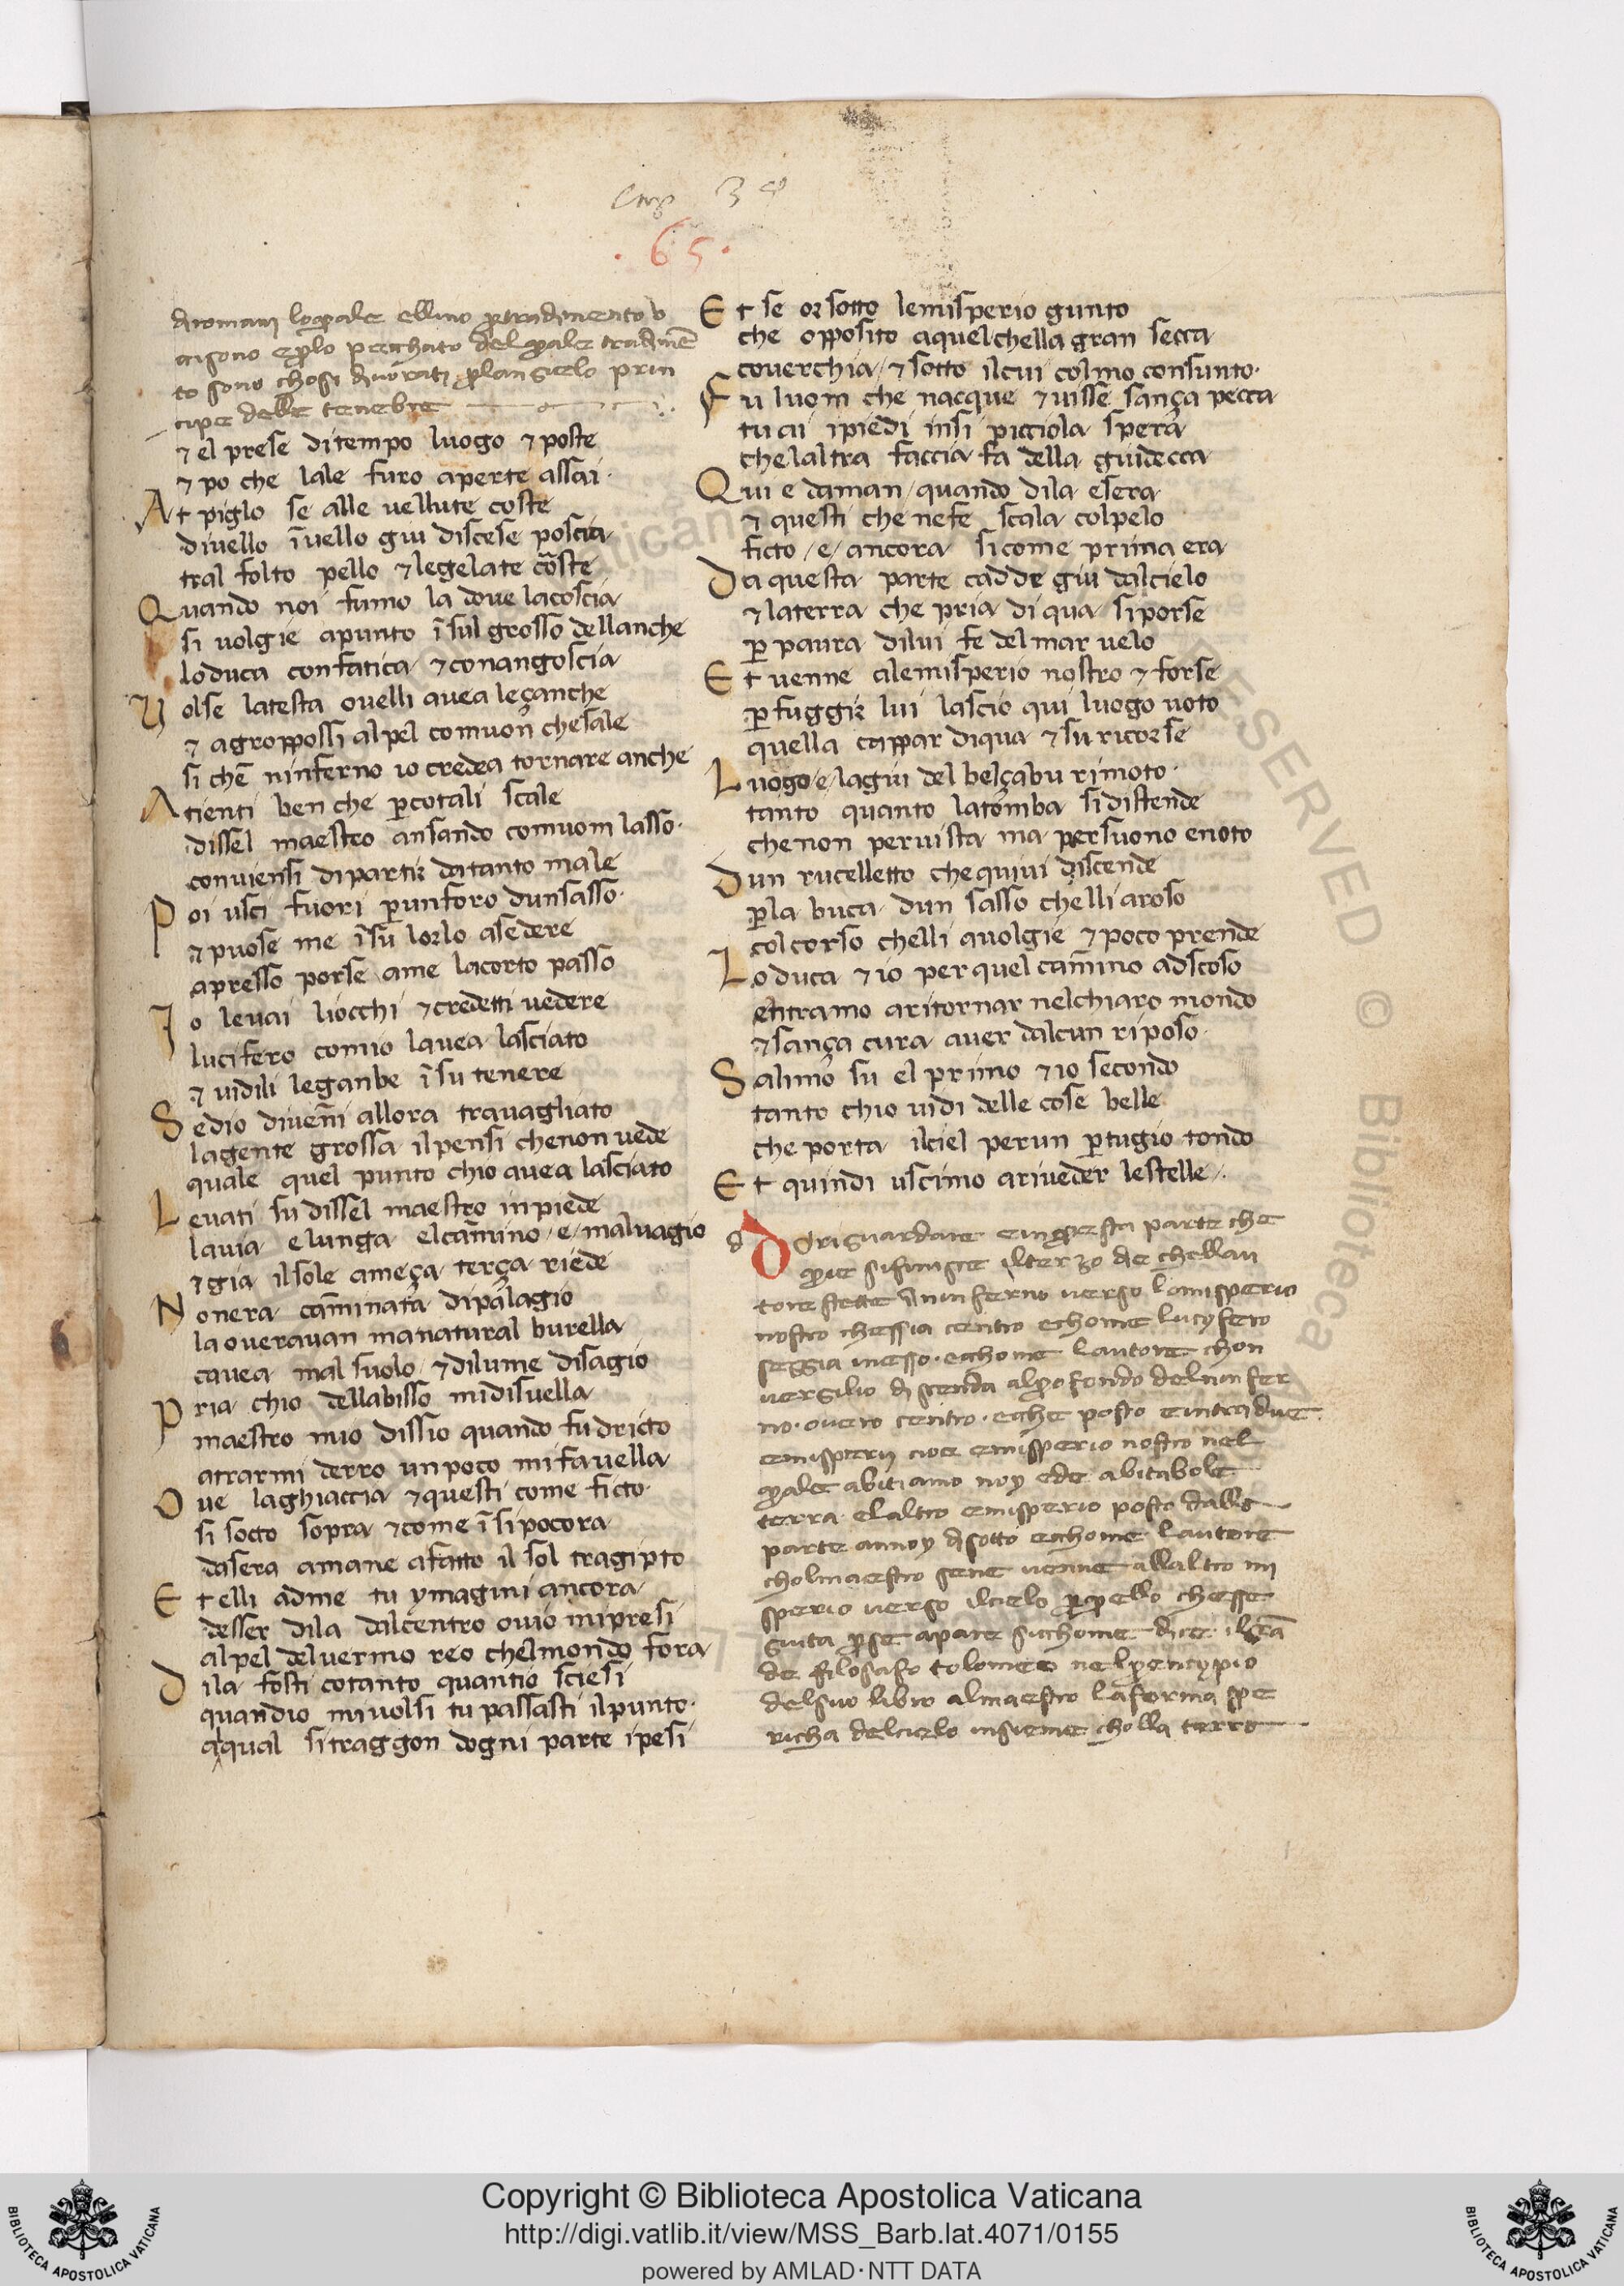 Cap 34
.65.
di romani loquale ellino per tradimento u
cisono e per lo pecchato del quale tradimē
to sono chosi divorati per lan gielo prin
cipe delle tenebre
⁊ el prese ditempo luogo ⁊ poste
⁊ po che lale furo aperte assai·
At piglo se alle vellute coste
divello ī vello giu discese poscia
tral folto pello ⁊ legelate cōste
Quando noi fumo la dove lacoscia
si volgie apunto ī sul grosso dellanche
loduca confatica ⁊ conangoscia
Volse latesta ovelli avea leçanche
⁊ agroppossi alpel comuon chesale
si chē ninferno io credea tornare anche
Atienti ben che ꝑcotali scale
dissel maestro ansando comuom lasso·
conviensi dipartir datanto male
Poi usci fuori ꝑunforo dunsasso·
⁊ puose me ī su lorlo asedere
apresso porse ame lacorto passo
Io levai liocchi ⁊ credetti vedere
lucifero comio lavea lasciato
⁊ vidili leganbe ī su tenere
Sedio divenni allora travagliato
lagente grossa ilpensi chenon vede
quale quel punto chio avea lasciato
Levati su dissel maestro inpiede
lavia elunga elcamino /e/ malvagio
⁊ gia ilsole ameça terça riede
Nonera caminata dipalagio
laoveravan manatural burella
cavea mal suolo ⁊ dilume disagio
Pria chio dellabisso midisvella
maestro mio dissio quando fu dricto
atrarmi derro unpoco mifavella
Ove laghiaccia ⁊ questi come ficto·
si socto sopra ⁊ come ī sipocora
dasera amane afatto il sol tragipto
Et elli adme tu ymagini ancora
desser dila dalcentro ovio mipresi
alpel delvermo reo chelmondo fora
Dila fosti cotanto quantio sciesi
quandio mivolsi tu passasti ilpunto·
alqual sitraggon dogni parte ipesi
Et se or sotto lemisperio gunto
che opposito aquelchella gran secca
coverchia ⁊ sotto ilcui colmo consunto·
Fu luom che nacque ⁊ visse sança pecca
tu cii ipiedi insi picciola spera
chelaltra faccia fa della guidecca
Qui e daman quando dila esera
⁊ questi che nefe scala colpelo
ficto /e/ ancora sicome prima era
Da questa parte cadde giu dalcielo
⁊ laterra che pria diqua siporse
ꝑ paura dilui fe delmar velo
Et venne alemisperio nostro ⁊ forse
ꝑ fuggir lui lascio qui luogo voto
quella cappar diqua ⁊ su ricorse
Luogo /e/ lagiu del belçabu rimoto·
tanto quanto latomba sidistende
chenon pervista ma persuono enoto
Dun rucelletto chequivi discende
ꝑla buca dun sasso chelli aroso
colcorso chelli avolgie ⁊ poco prende
Lo duca ⁊ io perquel camino adscoso
entramo aritornar nelchiaro mondo
⁊ sança cura aver dalcun riposo·
Salimo su el primo ⁊ io secondo
tanto chio vidi delle cose belle
che porta ilciel perun ꝑtugio tondo
Et quindi uscimo arivēder lestelle·
d D riguardare e in questa parte che
tore stette in inferno verso lomisperio
nostro chessia centro echome lucyfero
seggia messo· echome lautore chon
versilio discenda alprofondo delninfer
no· overo centro· eche posto e intra due
emisperij cioe emisperio nostro nel
quale abitiamo noy ede abitabole
terra elaltro emisperio posto dalla
parte annoy disotto echome lautore
cholmaestro sene venne allaltro mi
sperio verso ilcielo
de filosafo tolomeo nelprencypio
delsuo libro almaestro laforma spe
richa delcielo insieme cholla terra
Copyright © Biblioteca Apostolica Vaticana
http://digi.vatlib.it/view/MSS_Barb.lat.4071/0155
powered by AMLAD·NTT DATA
BIBLIOTECA APOSTOLICA VATICANA
BIBLIOTECA APOSTOLICA VATICANA